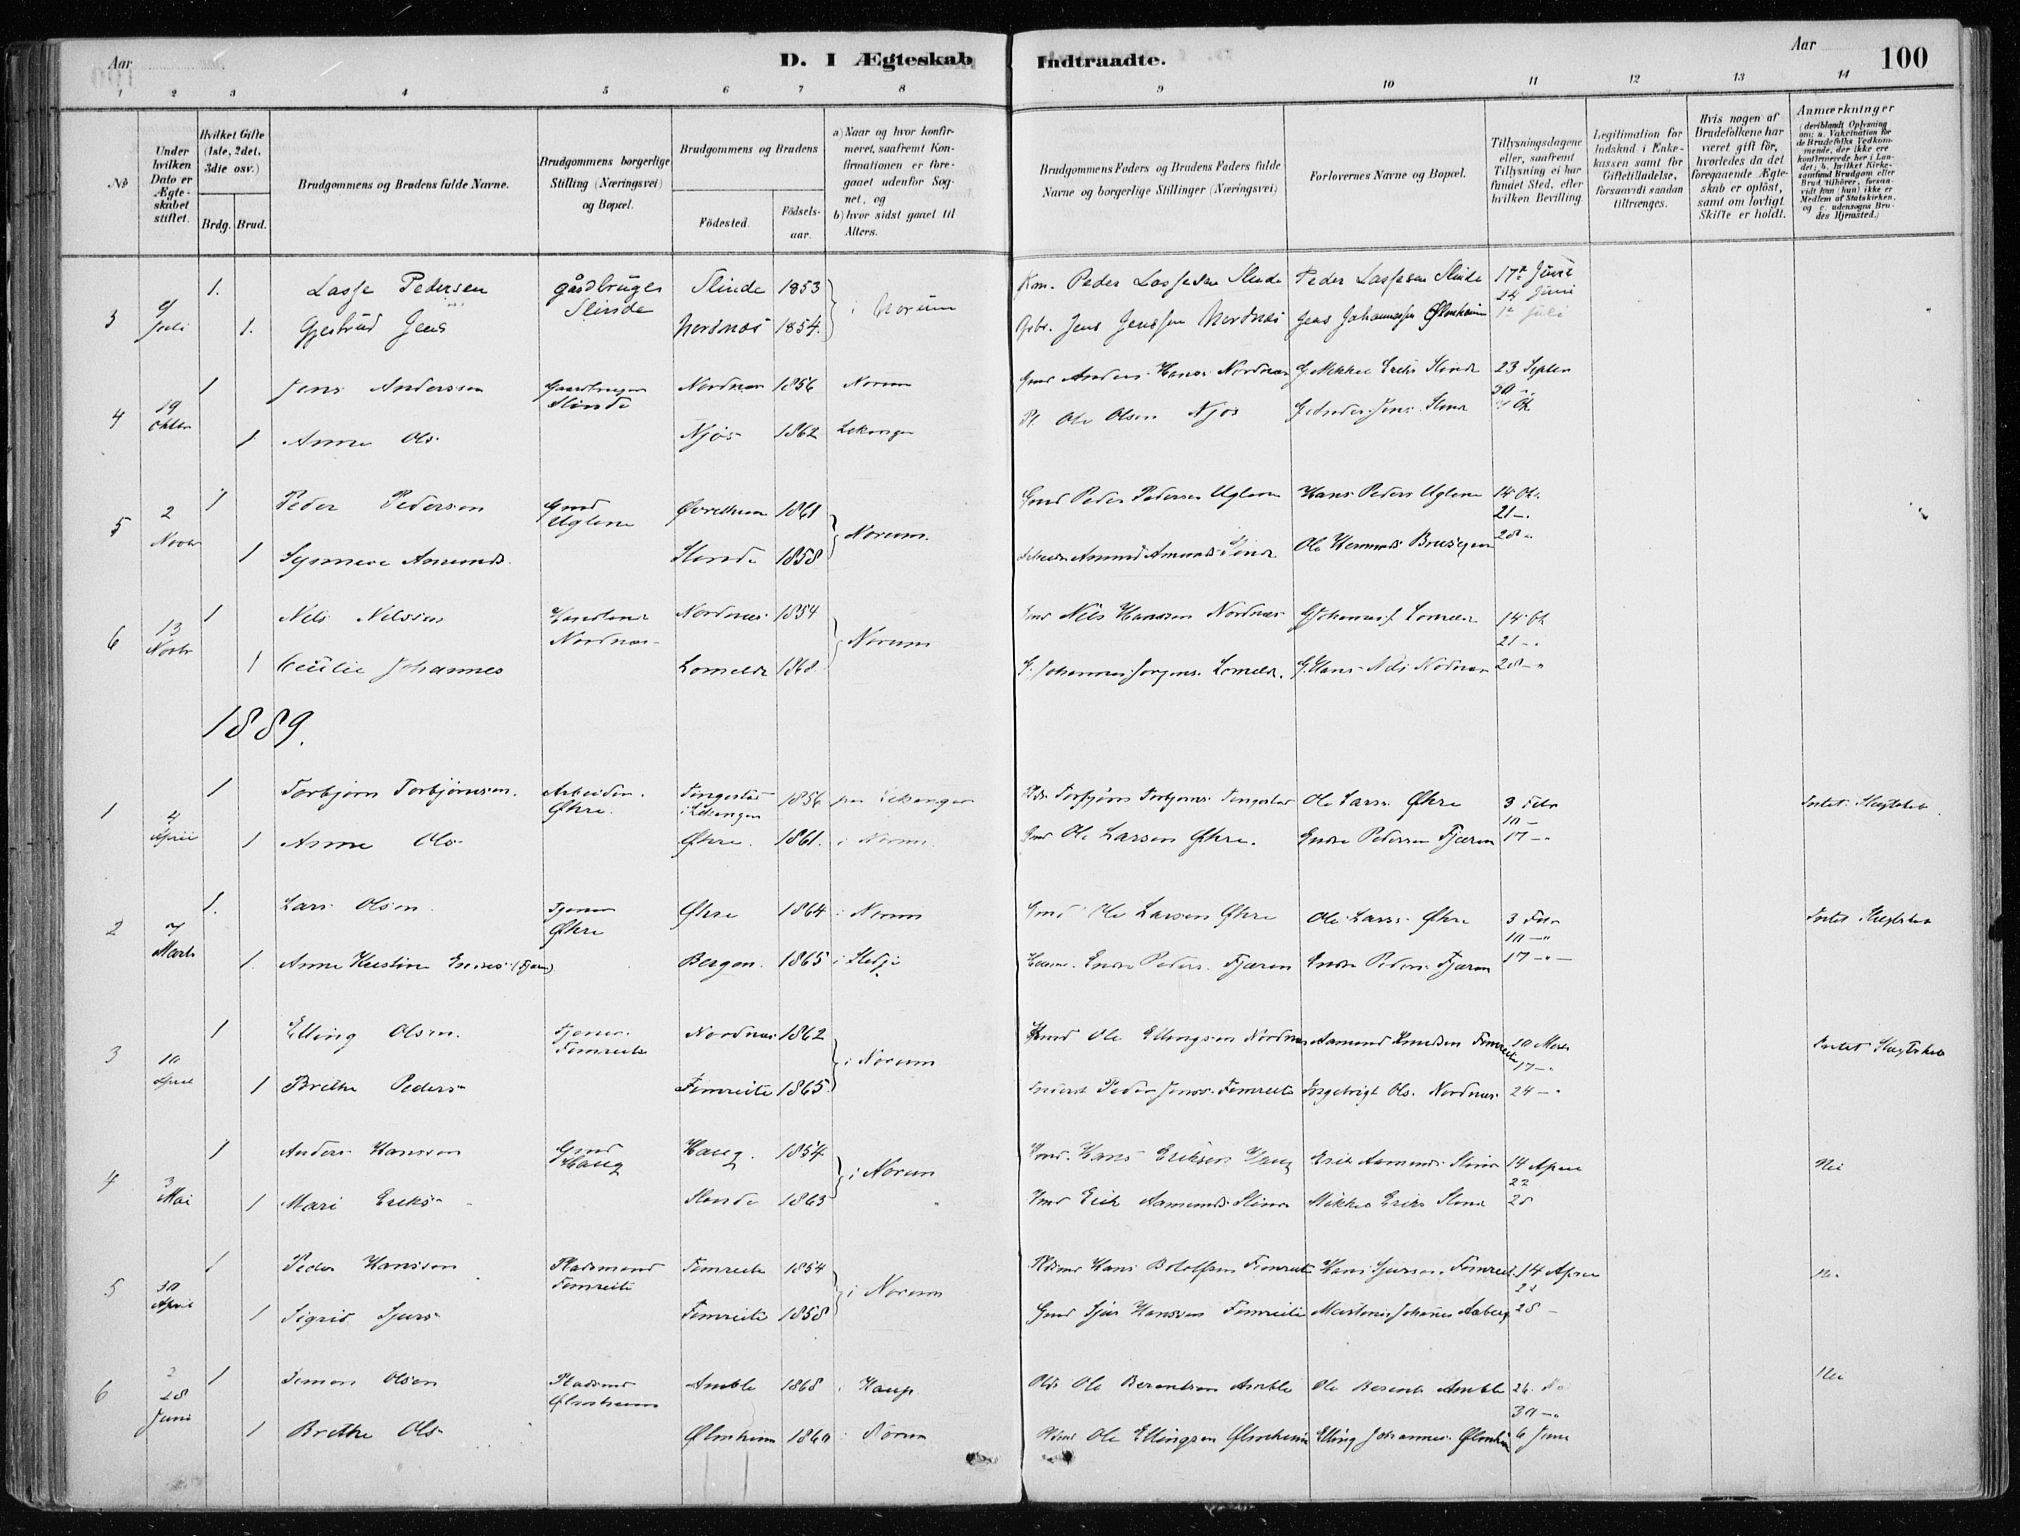 Aar
D. I Ægteskab Indtraadte.
Aar
100
1 2 3 4 5 6 7 8 9 10 11 12 13 14
№
Under hvilken Dato er Ægteskabet stiftet.
Hvilket Gifte (1ste, 2det, 3die osv.)
Brdg. Brud.
Brudgommens og Brudens fulde Navne.
Brudgommens borgerlige Stilling (Næringsvei) og Bopæl.
Brudgommens og Brudens
Födested.
Födselsaar.
a) Naar og hvor konfirmeret, saafremt Konfirmationen er foregaaet udenfor Sognet, og
b) hvor sidst gaaet til Alters.
Brudgommens Faders og Brudens Faders fulde Navne og borgerlige Stillinger (Næringsvei)
Forlovernes Navne og Bopæl.
Tillysningsdagene eller, saafremt Tillysning ei har fundet Sted, efter hvilken Bevilling.
Legitimation for Indskud i Enkekassen samt for Giftetilladelse, forsaavidt saadan tiltrænges.
Hvis nogen af Brudefolkene har været gift för, hvorledes da det foregaaende Ægteskab er oplöst, samt om lovligt Skifte er holdt.
Anmærkninger
(deriblandt Oplysning om: a. Vakcination for de Brudefolks Vedkommende, der ikke ere konfirmerede her i Landet; b. hvilket Kirkesamfund Brudgom eller Brud tilhörer, forsaavidt han (hun) ikke er Medlem af Statskirken, og c. udensogns Brudes Hjemsted.)
3 9 Juli 1. Lasse Pedersen gårdbruger Slinde Slinde 1853 i Norum Peder Lassesen Slinde Peder Lassesen Slinde 17de Juni 24 Juni 1ste Juli
1. Gjertrud Jens Nordnæs 1854. Jens Jenssen Nordnæs Jens Johannessen Ølmheim
4 19 Oktbr 1 Jens Anderssen Gaardbruger Slinde Nordnæs 1856 Norum Gmd Anders Hanss. Nordnæs G. Mikkel Eriks. Slinde 23 Septbr 30
1 Anne Ols Njøs 1862 Leikanger Ole Olsen Njøs G. Anders Jens. Slinde
5 2 Novbr 1 Peder Pedersen Gmd Uglum 1861 Norum. Gmd Peder Pedersen Uglum Hans Peders Uglum 14 Ok. 21 -
1 Synneve Amunds. Slinde 1858 Amund Amunds Slinde Ole 28 "
6 13 Novbr 1 Nils Nilssen Nordnæs Nordnæs 1854 Norum Gmd Nils Hanssen Nordnæs 14 Ok 21 - "
1 Cecilie Johannes Lomelde 1868 G. Johannes Jørgens. Lomelde. G. Hans Nils Nordnæs 28 - "
1889.
1 4 April 1 Torbjørn Torbjørnsen. Arbeider. Øhre. i Leikanger 1856 Leikanger Ole Larss. Øhre 3 Febr 10 - Intet Slægtskab
1 Anne Ols Øhre. 1861. i Norum. Gmd Ole Larsen Øhre. Endre Pedersen Fjæren 17 - "
2 7 Marts 1. Lars Olsen. Tjener Øhre Øhre 1864 i Norum Gmd Ole Larsen Øhre Ole Larss. Øhre 3 Febr 10 - " Intet Slægtskab
1. Anne Kristine Endres (Fjæren) Bergen. 1865 i Stedje Endre Peders. Fjæren Endre Peders. Fjæren 17 - " -
3 10 April 1 Elling Olsen. Tjener. Fimreite Nordnæs 1862 i Norum Gmd Ole Ellingsen Nordnæs Aamund Knudsen Fimreite 10 Marts 17 - " Intet Slægtskab
1 Brithe Peders Fimreite 1865 Peder Jenss. Fimreite Ingebrigt Ols. Nordnæs 24 - "
4 3 Mai 1 Anders Hanssen Gmd Haug Haug. 1854 i Norum Gmd. Hans Eriksen Haug Erik Aamunds Slinde 14 April 22 Nei
1 Mari Eriks Slinde 1863 Gmd Erik Aamunds. Slinde Mikkel Eriks Slinde 28
5 30 April 1 Peder Hanssen Pladsmand Fimreite Fimreite 1854 i Norum Pldsmd Hans Botolfsen Fimreite Hans Sjurss. Fimreite 14 April 22 Nei
1 Sigrid Sjurs Fimreite 1858 Gmd Sjur Hanssen Fimreite Martinus Johannes Aaberg 28 -
6 28 Juni 1 Simon Olsen Pladsmd Ølmheim Amble 1868 i Kaup. Ole Berentsen Amble Ole Berents Amble 26. 30 - " Nei
1 Brithe Ols Ølmheim 1860 i Norum Ole Ellingsen Ølmheim Elling Johannes. Ølmheim 6 Juni